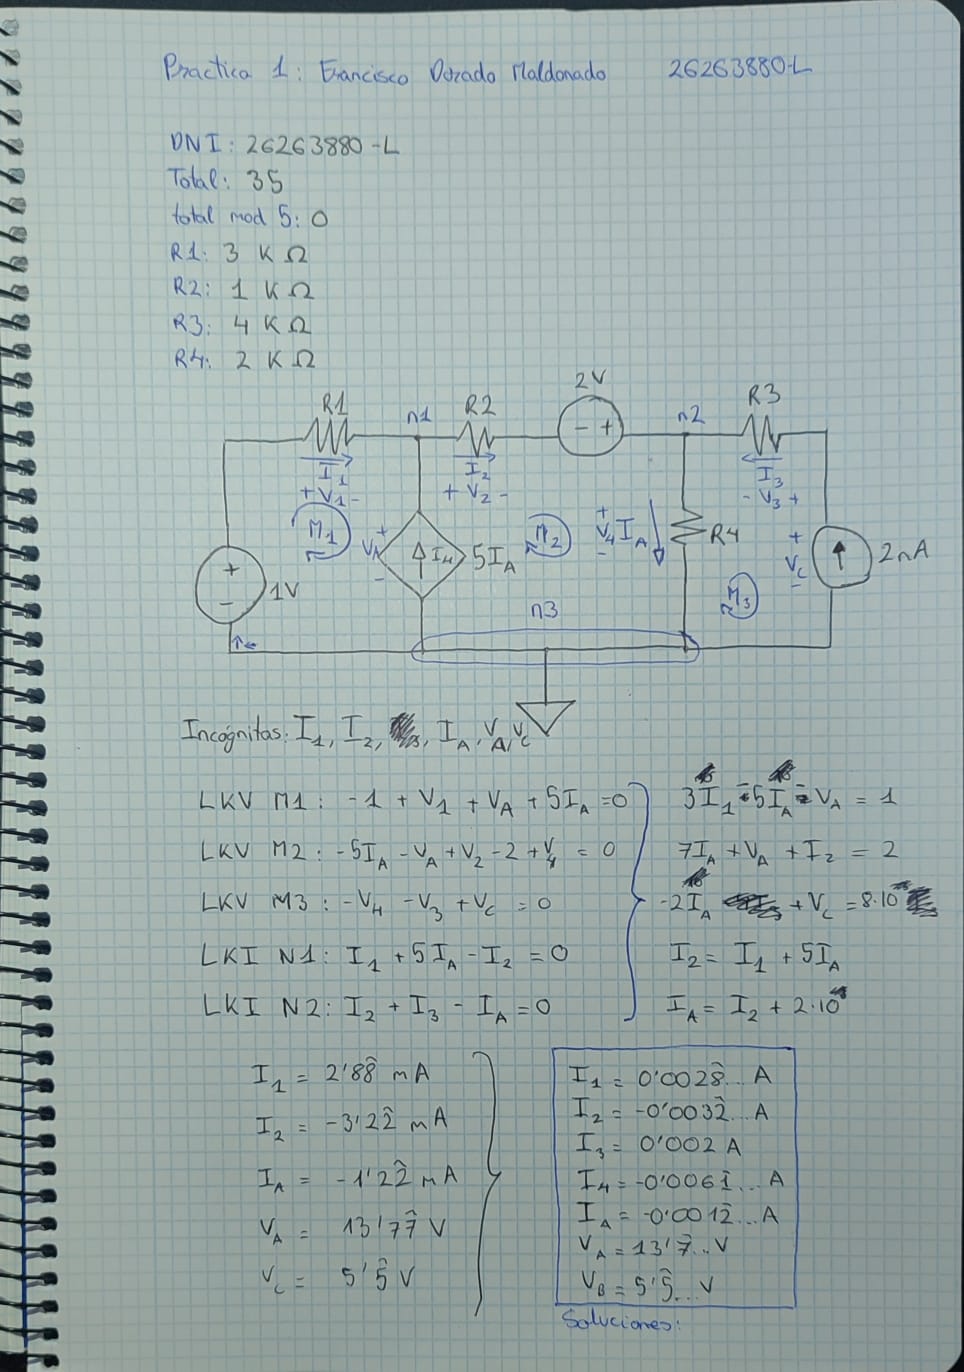 Practica 1: Francisco Dorado Maldonado 26263880-L
DNI: 26263880-L
Total: 35
total mod 5: 0
R1: 3 KΩ
R2: 1 KΩ
R3: 4 KΩ
R4: 2 KΩ
R1 n1 R2 2V n2 R3
- +
I₁ I₂ I₃
+ V₁ - + V₂ - - V₃ +
M₁ VA + - I₄ 5IA M₂ + V₄ - IA R4 + Vc - 2mA
+ - 1V M₃
n3
Incógnitas: I₁, I₂, , IA, VA, Vc
LKV M1: -1 + V₁ + VA + 5IA = 0 3I₁ - 5IA - VA = 1
LKV M2: -5IA - VA + V₂ - 2 + V₄ = 0 7IA + VA + I₂ = 2
LKV M3: -V₄ - V₃ + Vc = 0 -2IA + Vc = 8·10
LKI N1: I₁ + 5IA - I₂ = 0 I₂ = I₁ + 5IA
LKI N2: I₂ + I₃ - IA = 0 IA = I₂ + 2·10
I₁ = 2'88̂ mA
I₂ = -3'22̂ mA
IA = -1'22̂ mA
VA = 13'77̂ V
Vc = 5'5̂ V
I₁ = 0'0028̂... A
I₂ = -0'0032̂... A
I₃ = 0'002 A
I₄ = -0'0061̂... A
IA = -0'0012̂... A
VA = 13'7̂... V
VB = 5'5̂... V
Soluciones: